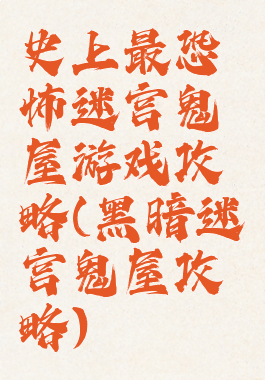 史上最恐
怖迷宫鬼
屋游戏攻
略(黑暗迷
宫鬼屋攻
略)